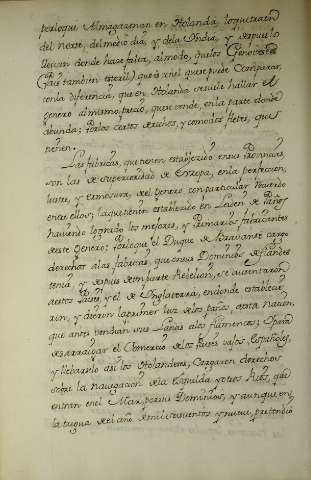 porloque Almagazenan en Holanda, loquetraen
del norte, del medio dia, y dela India, y despues lo
llevan donde hace falta, al modo, quelos Genoveses
(Pais tambien esteril) que es en el que se puede Comparar,
con la diferencia, que en Holanda se suele hallar el
genero al mismo precio, que se vende, en la parte donde
abunda; por los cortos derechos, y comodos fletes, que
tienen.
Las fabricas, que tienen establecido en sus Provincias,
son las de superioridad de Europa, en la perfeccion,
lustre, y hermosura, del genero con particular
entre ellos; la que tienen establecido en Leiden de Paños
haviendo logrado los mejores, y Primarios fabricantes
de este Genero: Porloque el Duque de Bravante cargo
derechos alas fabricas, que en sus Dominios de flandes
tenia, y despues de un parte Rebelion, se ausentaron
a estos Paises, y el de Inglaterra, en donde establecie-
ron, y dieron la primer luz de los paños, a esta nacion,
que antes vendian sus Lanas alos flamencos;
desarraigar el Comercio de los Paises vajos, Españoles,
y llebarselo asi los Holandeses, Cargaron derechos
sobre la navegacion de la Esquelda y otros Rios, que
entran en el Mar, por sus Dominios, y aunque en
la tregua del año de mil seiscientos y nueve, pretendio